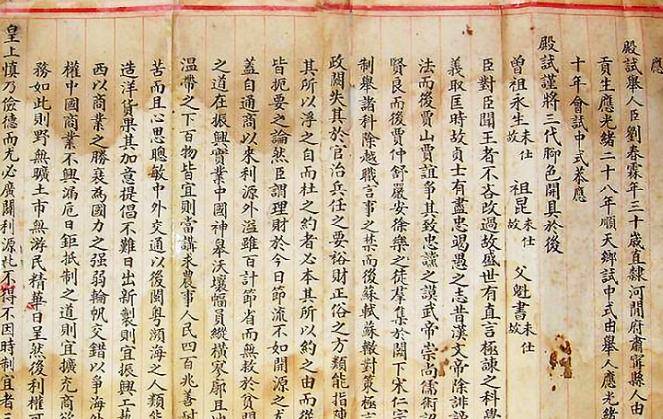 應
殿試舉人臣劉春霖年三十歲直隸河間府肅寧縣人由
貢生應光緒二十八年順天鄉試中式由舉人應光緒
十年會試中式恭應
殿試謹將三代腳色開具於後
曾祖永生未仕故 祖昆未仕故 父魁書未仕故
臣對臣聞王者不吝改過故盛世有直言極諫之科學
義取匡時故貞士有盡忠竭愚之志昔漢文帝除誹謗
法而後賈山賈誼爭其致忠讜之謨武帝崇尚儒術
賢良而後賈仲舒嚴安徐樂之徒羣集於闕下宋仁宗
制舉諸科除越職言事之禁而後蘇軾蘇轍對策極言
政闕失其於官治兵任之要裕財正俗之方類能指陳
其所以浮之自而杜之約者必本其所以約之由而從
皆扼要之論然臣謂理財於今日節流不如開源之
蓋自通商以來利源外溢雖百計節省而無救於貧
之道在振興實業中國神皋沃壤幅員縱橫寥廓且地
溫帶之下百物皆宜則當講求農事人民四百兆善耐
苦而且心思聰敏中外交通以後閩粵瀕海之人類能
造洋貨果其加意提倡不難日出新製則宜振興工藝
西以商業之勝衰為國力之强弱輪帆交錯以爭海外
權中國商業不興漏巵日鉅抵制之道則宜擴充商
務如此則野無曠土市無游民精華日呈然後利權可
皇上慎乃儉德而尤必廣闢利源此不得不因時制宜者